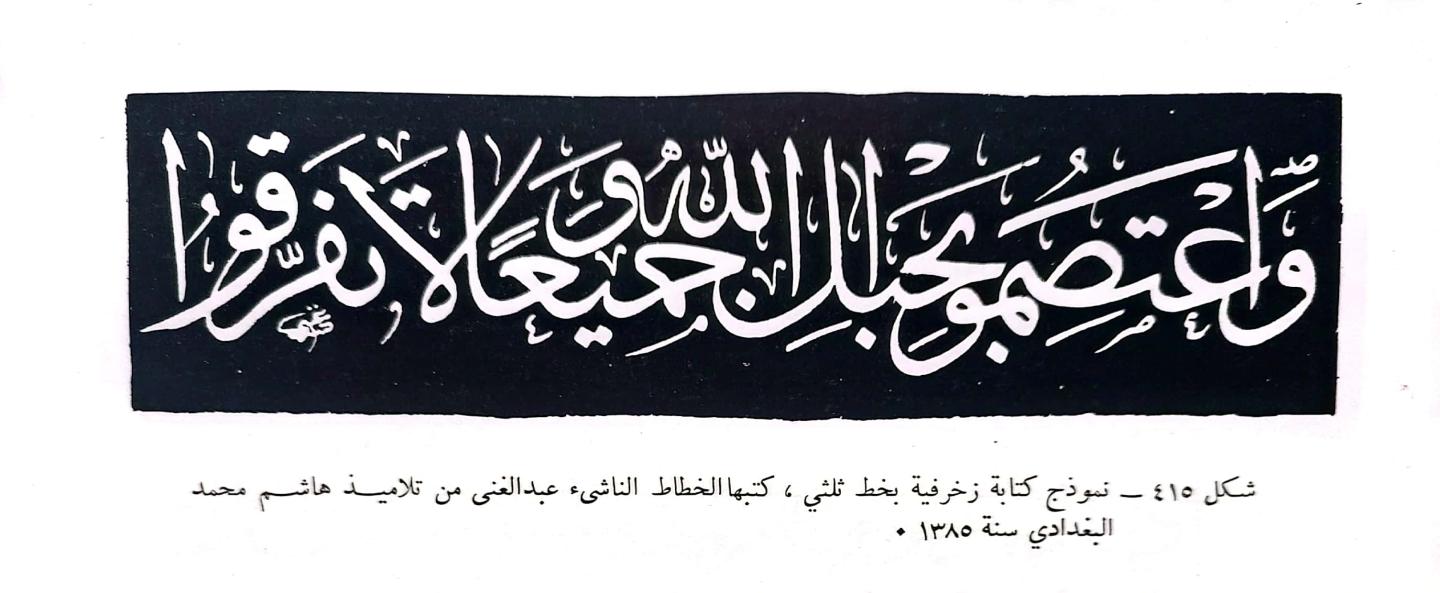 وَاعْتَصِمُوا بِحَبْلِ اللّٰهِ جَمِيعًا وَلَا تَفَرَّقُوا
شكل ٤١٥ ــ نموذج كتابة زخرفية بخط ثلثي ، كتبها الخطاط الناشىء عبدالغنى من تلاميذ هاشم محمد
البغدادي سنة ١٣٨٥ .